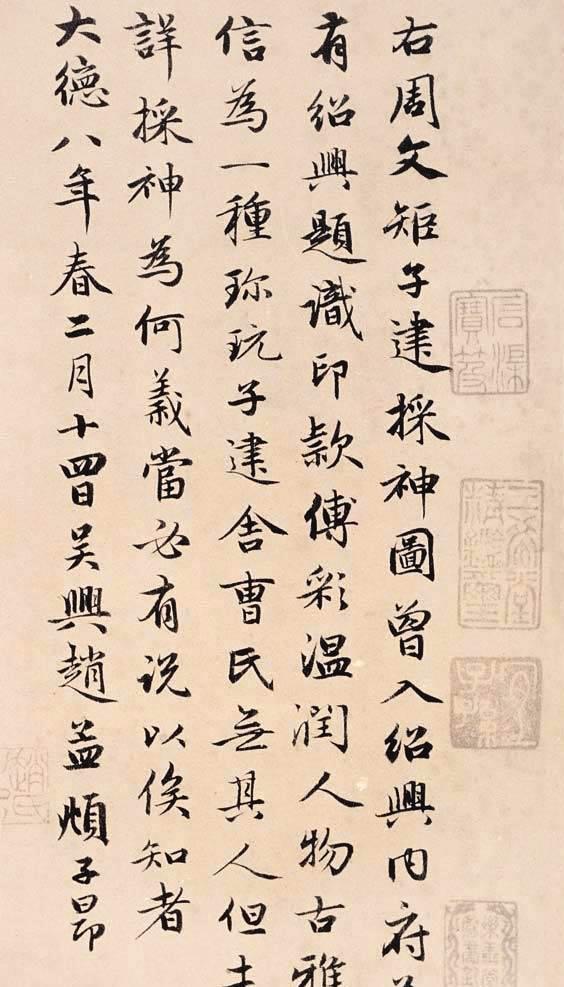 右周文矩子建採神圖曾入紹興内府
有紹興題識印款傅彩温潤人物古雅
信為一種珎玩子建舍曹氏無其人但未
詳採神為何義當必有説以俟知者
大德八年春二月十四日吴興趙孟頫子昂
石渠寶笈
三希堂精鑑璽
宜子孫